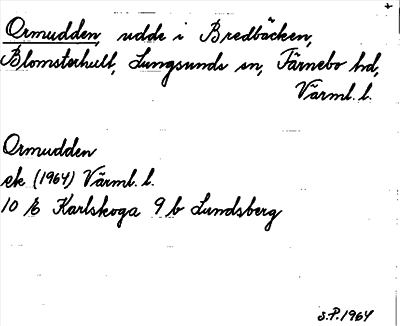 Ormudden, udde i Bredbäcken,
Blomsterhult, Lungsunds sn, Färnebo hd,
Värml. l.
Ormudden
ek (1964) Värml. l.
10 E Karlskoga 9 b Lundsberg
S.P. 1964